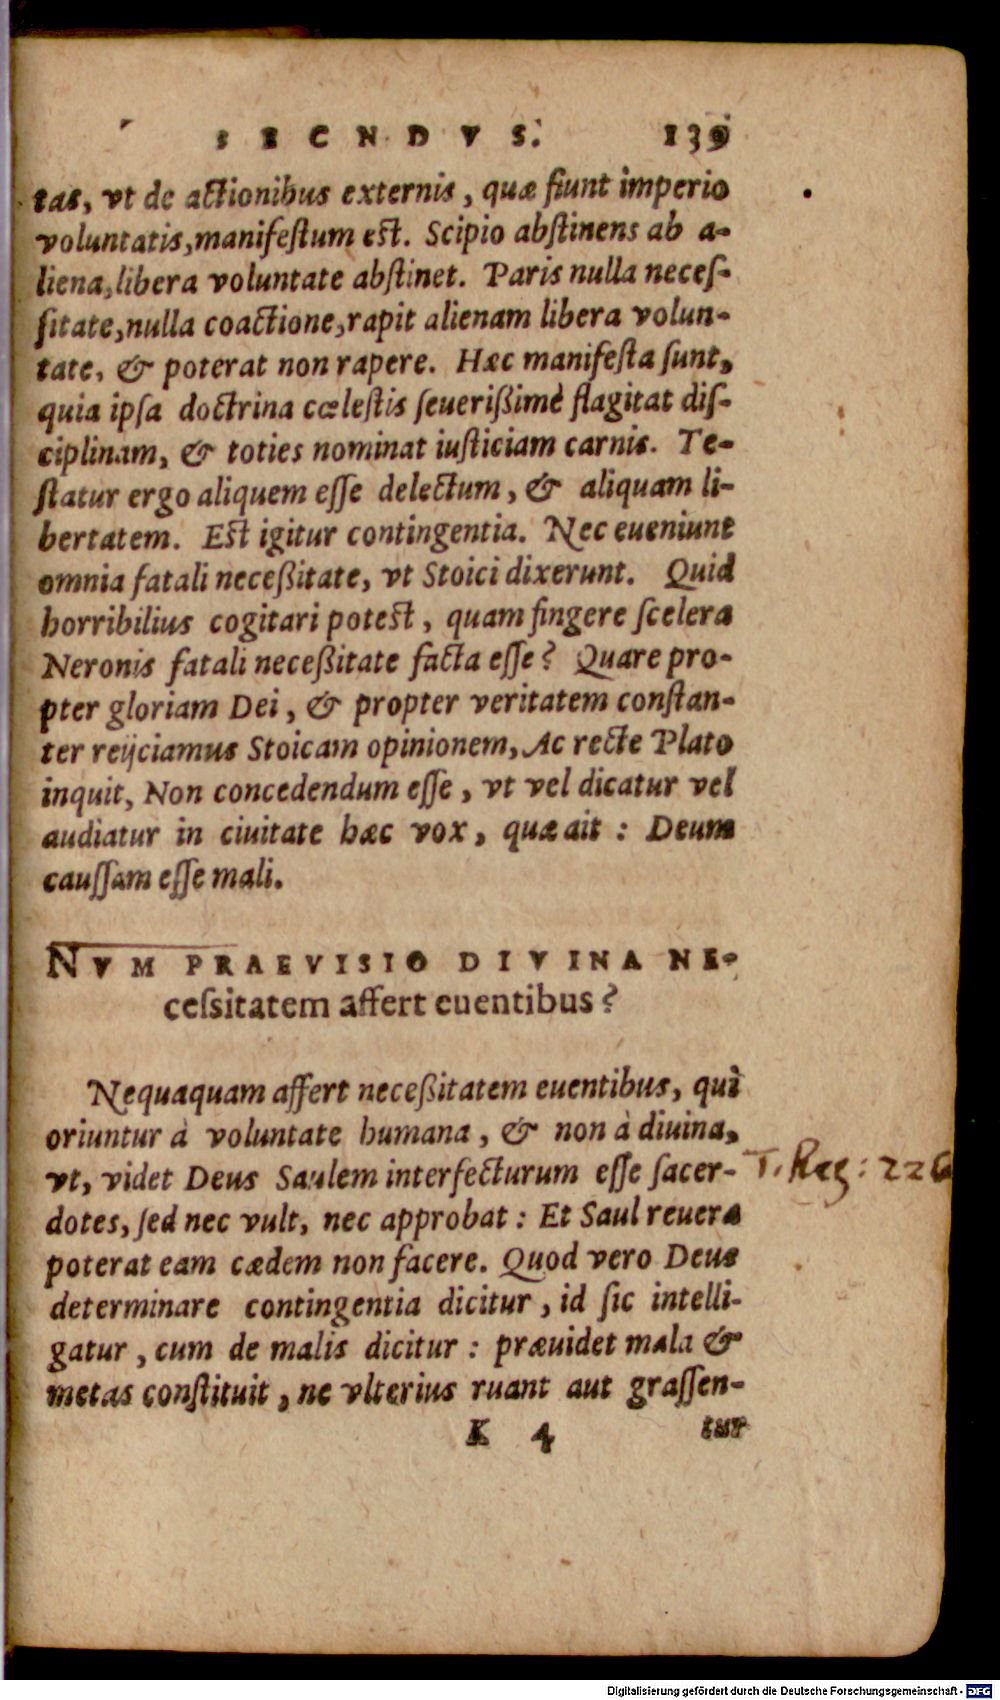 SECNDVS. 139
tas, vt de actionibus externis, quæ fiunt imperio
voluntatis, manifestum est. Scipio abstinens ab a-
liena, libera voluntate abstinet. Paris nulla neces-
sitate, nulla coactione, rapit alienam libera volun-
tate, & poterat non rapere. Hæc manifesta sunt,
quia ipsa doctrina cœlestis seuerißimè flagitat dis-
ciplinam, & toties nominat iusticiam carnis. Te-
statur ergo aliquem esse delectum, & aliquam li-
bertatem. Est igitur contingentia. Nec eueniunt
omnia fatali neceßitate, vt Stoici dixerunt. Quid
horribilius cogitari potest, quam fingere scelera
Neronis fatali neceßitate facta esse? Quare pro-
pter gloriam Dei, & propter veritatem constan-
ter reijciamus Stoicam opinionem, Ac recte Plato
inquit, Non concedendum esse, vt vel dicatur vel
audiatur in ciuitate hæc vox, quæ ait: Deum
caussam esse mali.
NVM PRAEVISIO DIVINA NE-
cessitatem affert euentibus?
Nequaquam affert neceßitatem euentibus, qui
oriuntur à voluntate humana, & non à diuina,
vt, videt Deus Saulem interfecturum esse sacer-
1. Reg: 22 6
dotes, sed nec vult, nec approbat: Et Saul reuera
poterat eam cædem non facere. Quod vero Deus
determinare contingentia dicitur, id sic intelli-
gatur, cum de malis dicitur: præuidet mala &
metas constituit, ne vlterius ruant aut grassen-
K 4 tur
Digitalisierung gefördert durch die Deutsche Forschungsgemeinschaft - DFG